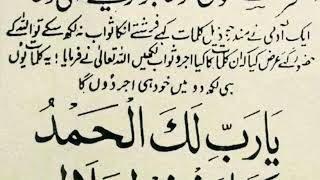 ایک آدمی نے مندرجہ ذیل کلمات کہے فرشتے انکا ثواب نہ لکھ سکے تو اللہ کے
حضور کے عرض کیا ان کلمات کا کیا اجر و ثواب لکھیں اللہ تعالیٰ نے فرمایا! یہ کلمات یوں
ہی لکھ دو میں خود ہی اجر دوں گا
يَا رَبِّ لَكَ الْحَمْدُ